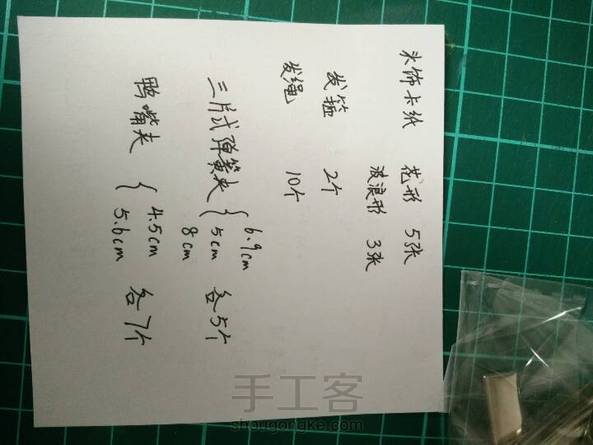 头饰卡纸 花形 5张
波浪形 3张
发箍 2个
发绳 10个
三片式弹簧夹 { 6.9cm
5cm 各5个
8cm
鸭嘴夹 { 4.5cm 各7个
5.6cm
手工客
shougongke.com